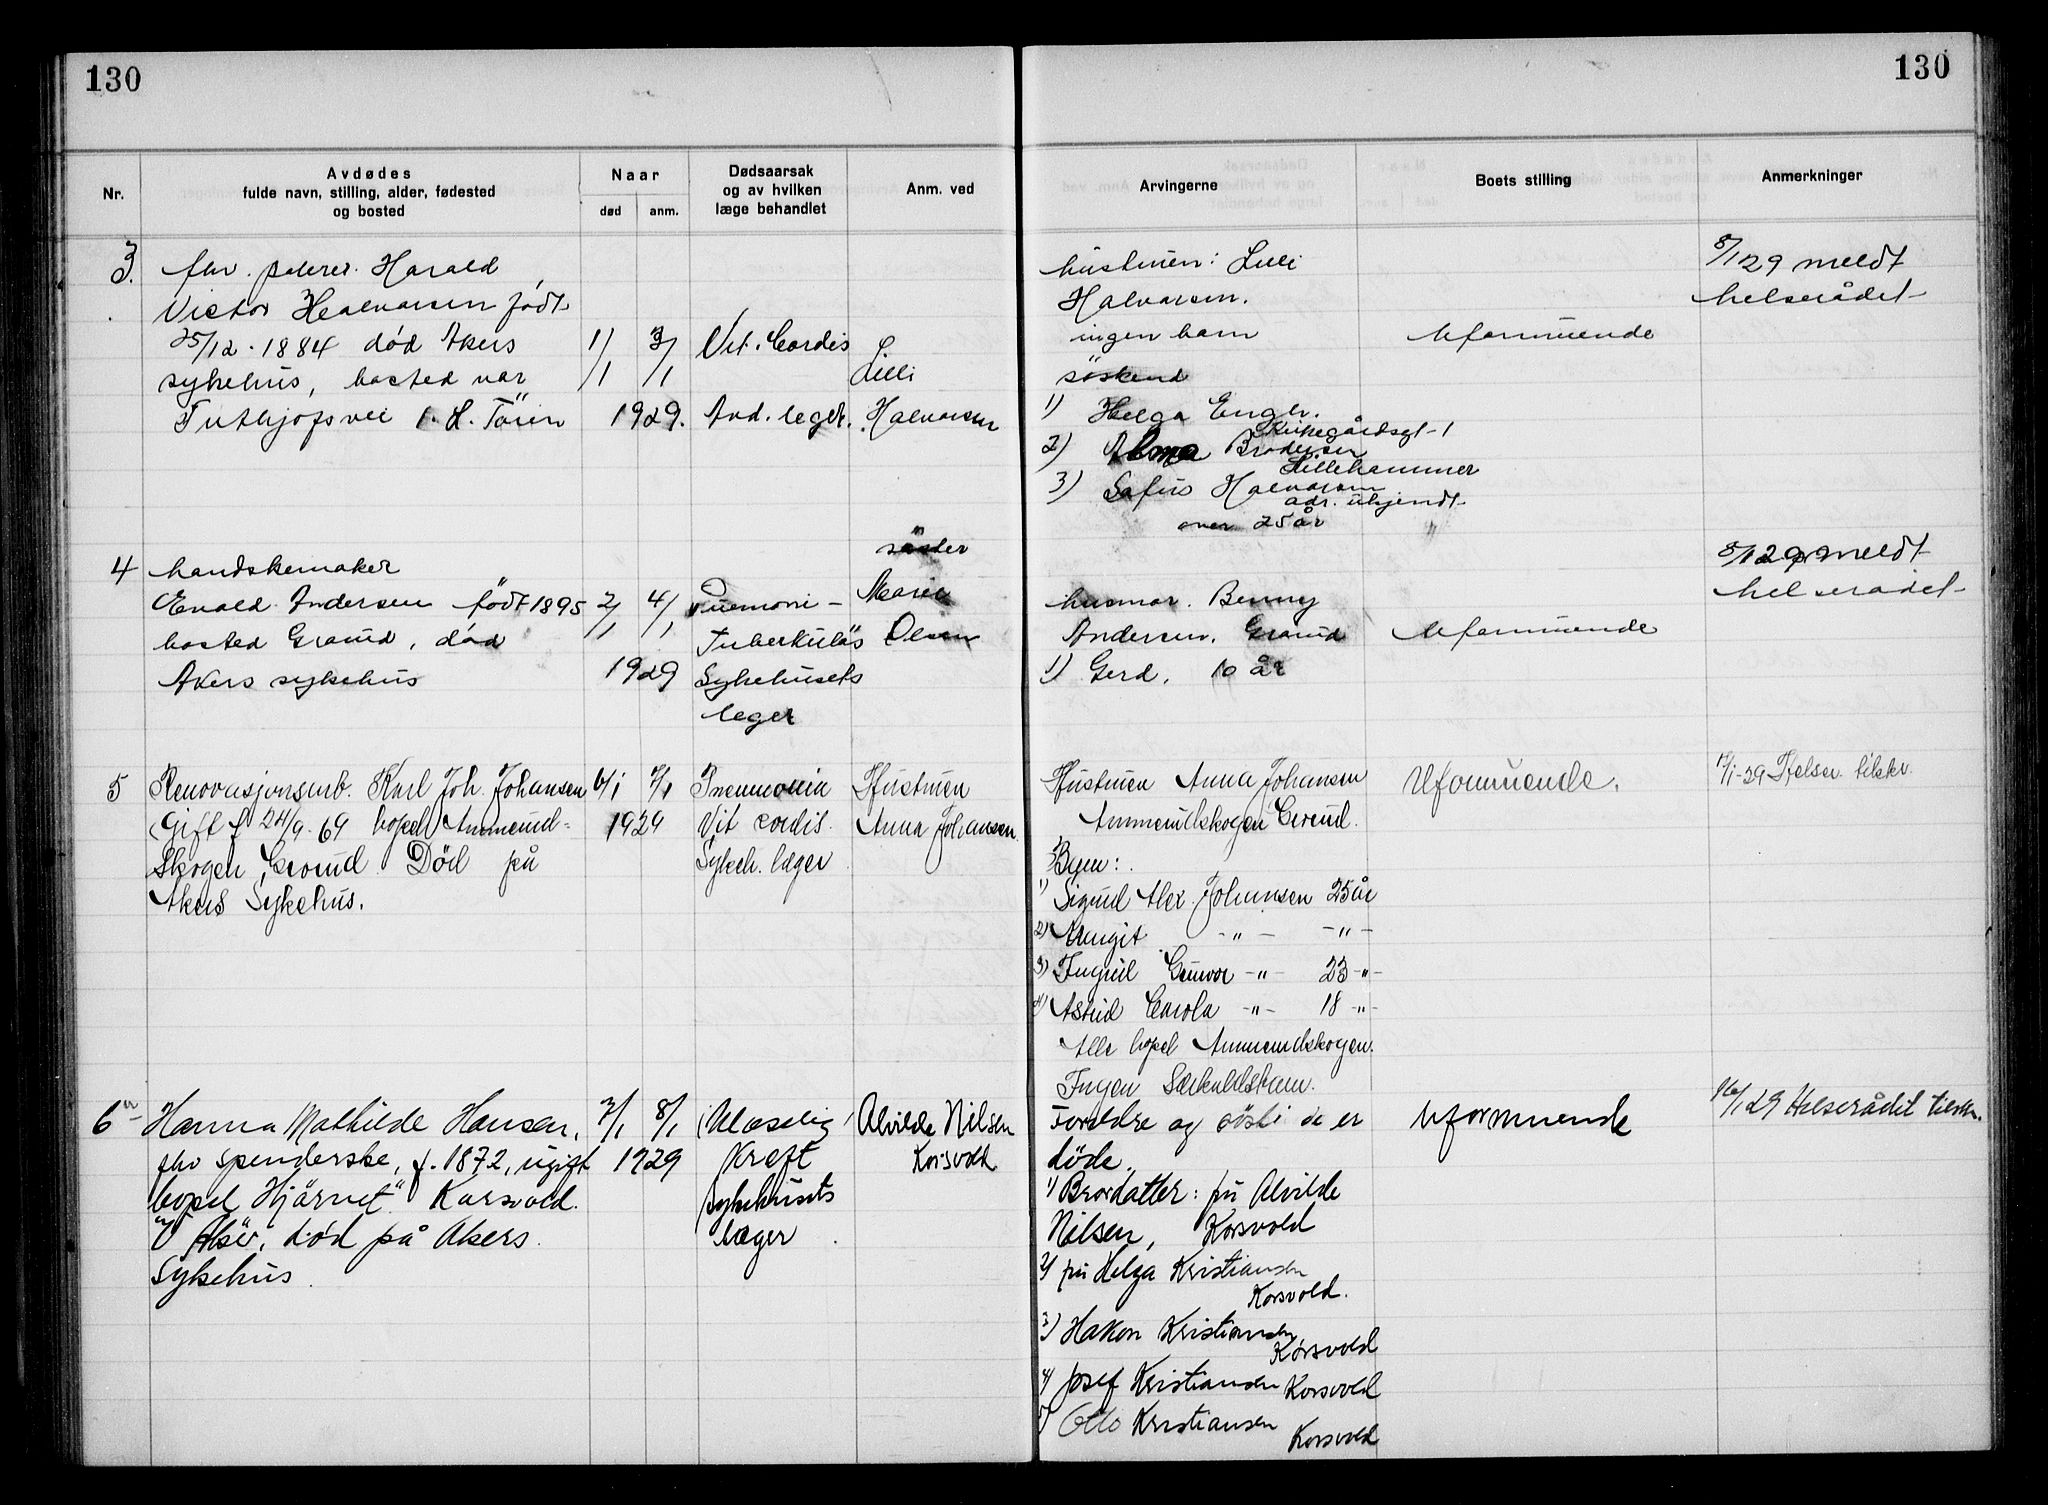 130
130
Nr.
Avdødes
fulde navn, stilling, alder, fødested
og bosted
Naar
død
anm.
Dødsaarsak
og av hvilken
læge behandlet
Anm. ved
Arvingerne
Boets stilling
Anmerkninger
3.
fhv. Harald
Victor Halvorsen født
25/12 - 1884 død Akers
sykehus, bosted var
1. H. Töien
1/1
3/1
1929.
Vit. Cordis
Avd. leger.
Lilli
Halvorsen
hustruen: Lilli
Halvorsen.
ingen barn
søskend
1) Helga Engh.
Kirkegårdsgt-1
2) Alma Brodersen
Lillehammer
3) Halvorsen
adr. ukjendt
over 25 år
Uformuende
8/1 29 meldt
helserådet
4
handskemaker
Evald Andersen født 1895
bosted Grorud, død
Akers sykehus
2/1
4/1
1929
Pnemoni -
Tuberkuløs
Sykehusets
leger
søster
Marie
Olsen
husmor. Benny
Andersen, Grorud
1) Gerd, 10 år
Uformuende
8/1 29 meldt
helserådet
5
Renovasjonsarb. Karl Joh. Johansen
Gift f 24/9 - 69 bopel Ammerud-
skogen, Grorud. Död på
Akers Sykehus.
6/1
7/1
1929
Pneumonia
Vit cordis.
Sykeh. læger
Hustruen
Anna Johansen.
Hustruen Anna Johansen
Ammerudskogen Grorud.
Barn:
1) Sigurd Alex. Johansen 25 år
2) Margit -"- -"-
3) Ingrid Gunvor -"- 23 -"-
4) Astrid Carola -"- 18 -"-
Alle bopel Ammerudskogen.
Ingen Særkuldsbarn.
Uformuende.
-29 Helser. tilskr.
6
Hanna Mathilde Hansen,
fhv spenderske, f. 1872, ugift
bopel Hjörnet" Korsvold.
död på Akers
Sykehus.
7/1
8/1
1929
Ulaselig
Kreft
Sykehusets
læger
Alvilde Nilsen
Korsvold
Foreldre og de er
döde.
1) Brordatter: fru Alvilde
Nilsen, Korsvold
2) fru Helga Kristiansen
Korsvold.
3) Håkon Kristiansen,
Korsvold
4) Josef Kristiansen Korsvold
5) Otto Kristiansen
Korsvold
Uformuende
16/1 29 Helserådet tilskr.